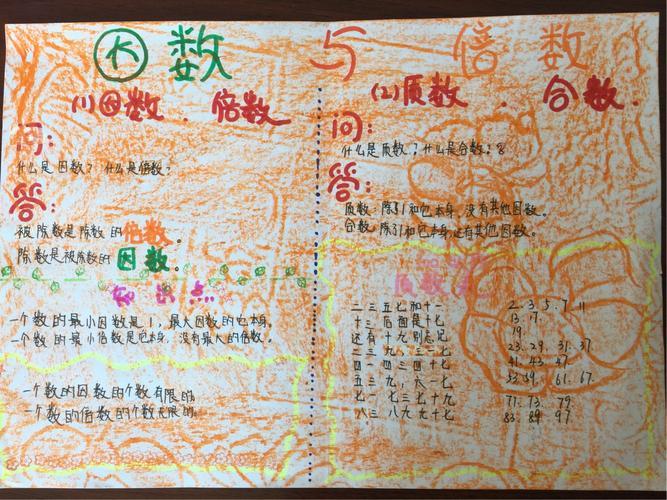 因数与倍数
(1)因数、倍数
问:
什么是因数?什么是倍数?
答:
被除数是除数的倍数。
除数是被除数的因数。
一个数的最小因数是1,最大因数的它本身。
一个数的最小倍数是它本身,没有最大的倍数。
一个数的因数的个数有限的。
一个数的倍数的个数无限的。
(2)质数、合数
问:
什么是质数?什么是合数?
答:
质数:除引和它本身,没有其他因数。
合数:除引和它本身还有其他因数。
质数
二三五七和十一
十三后面是十七
还有十九别忘记
二三九,三一七
四一四三四十七
五三九,六一七
七一七三七十九
八三八九九十七
2.3.5.7 11
13.17.
19.
23.29.31.37
41.43.47
53.59.61.67.
71.73.79
83.89.97